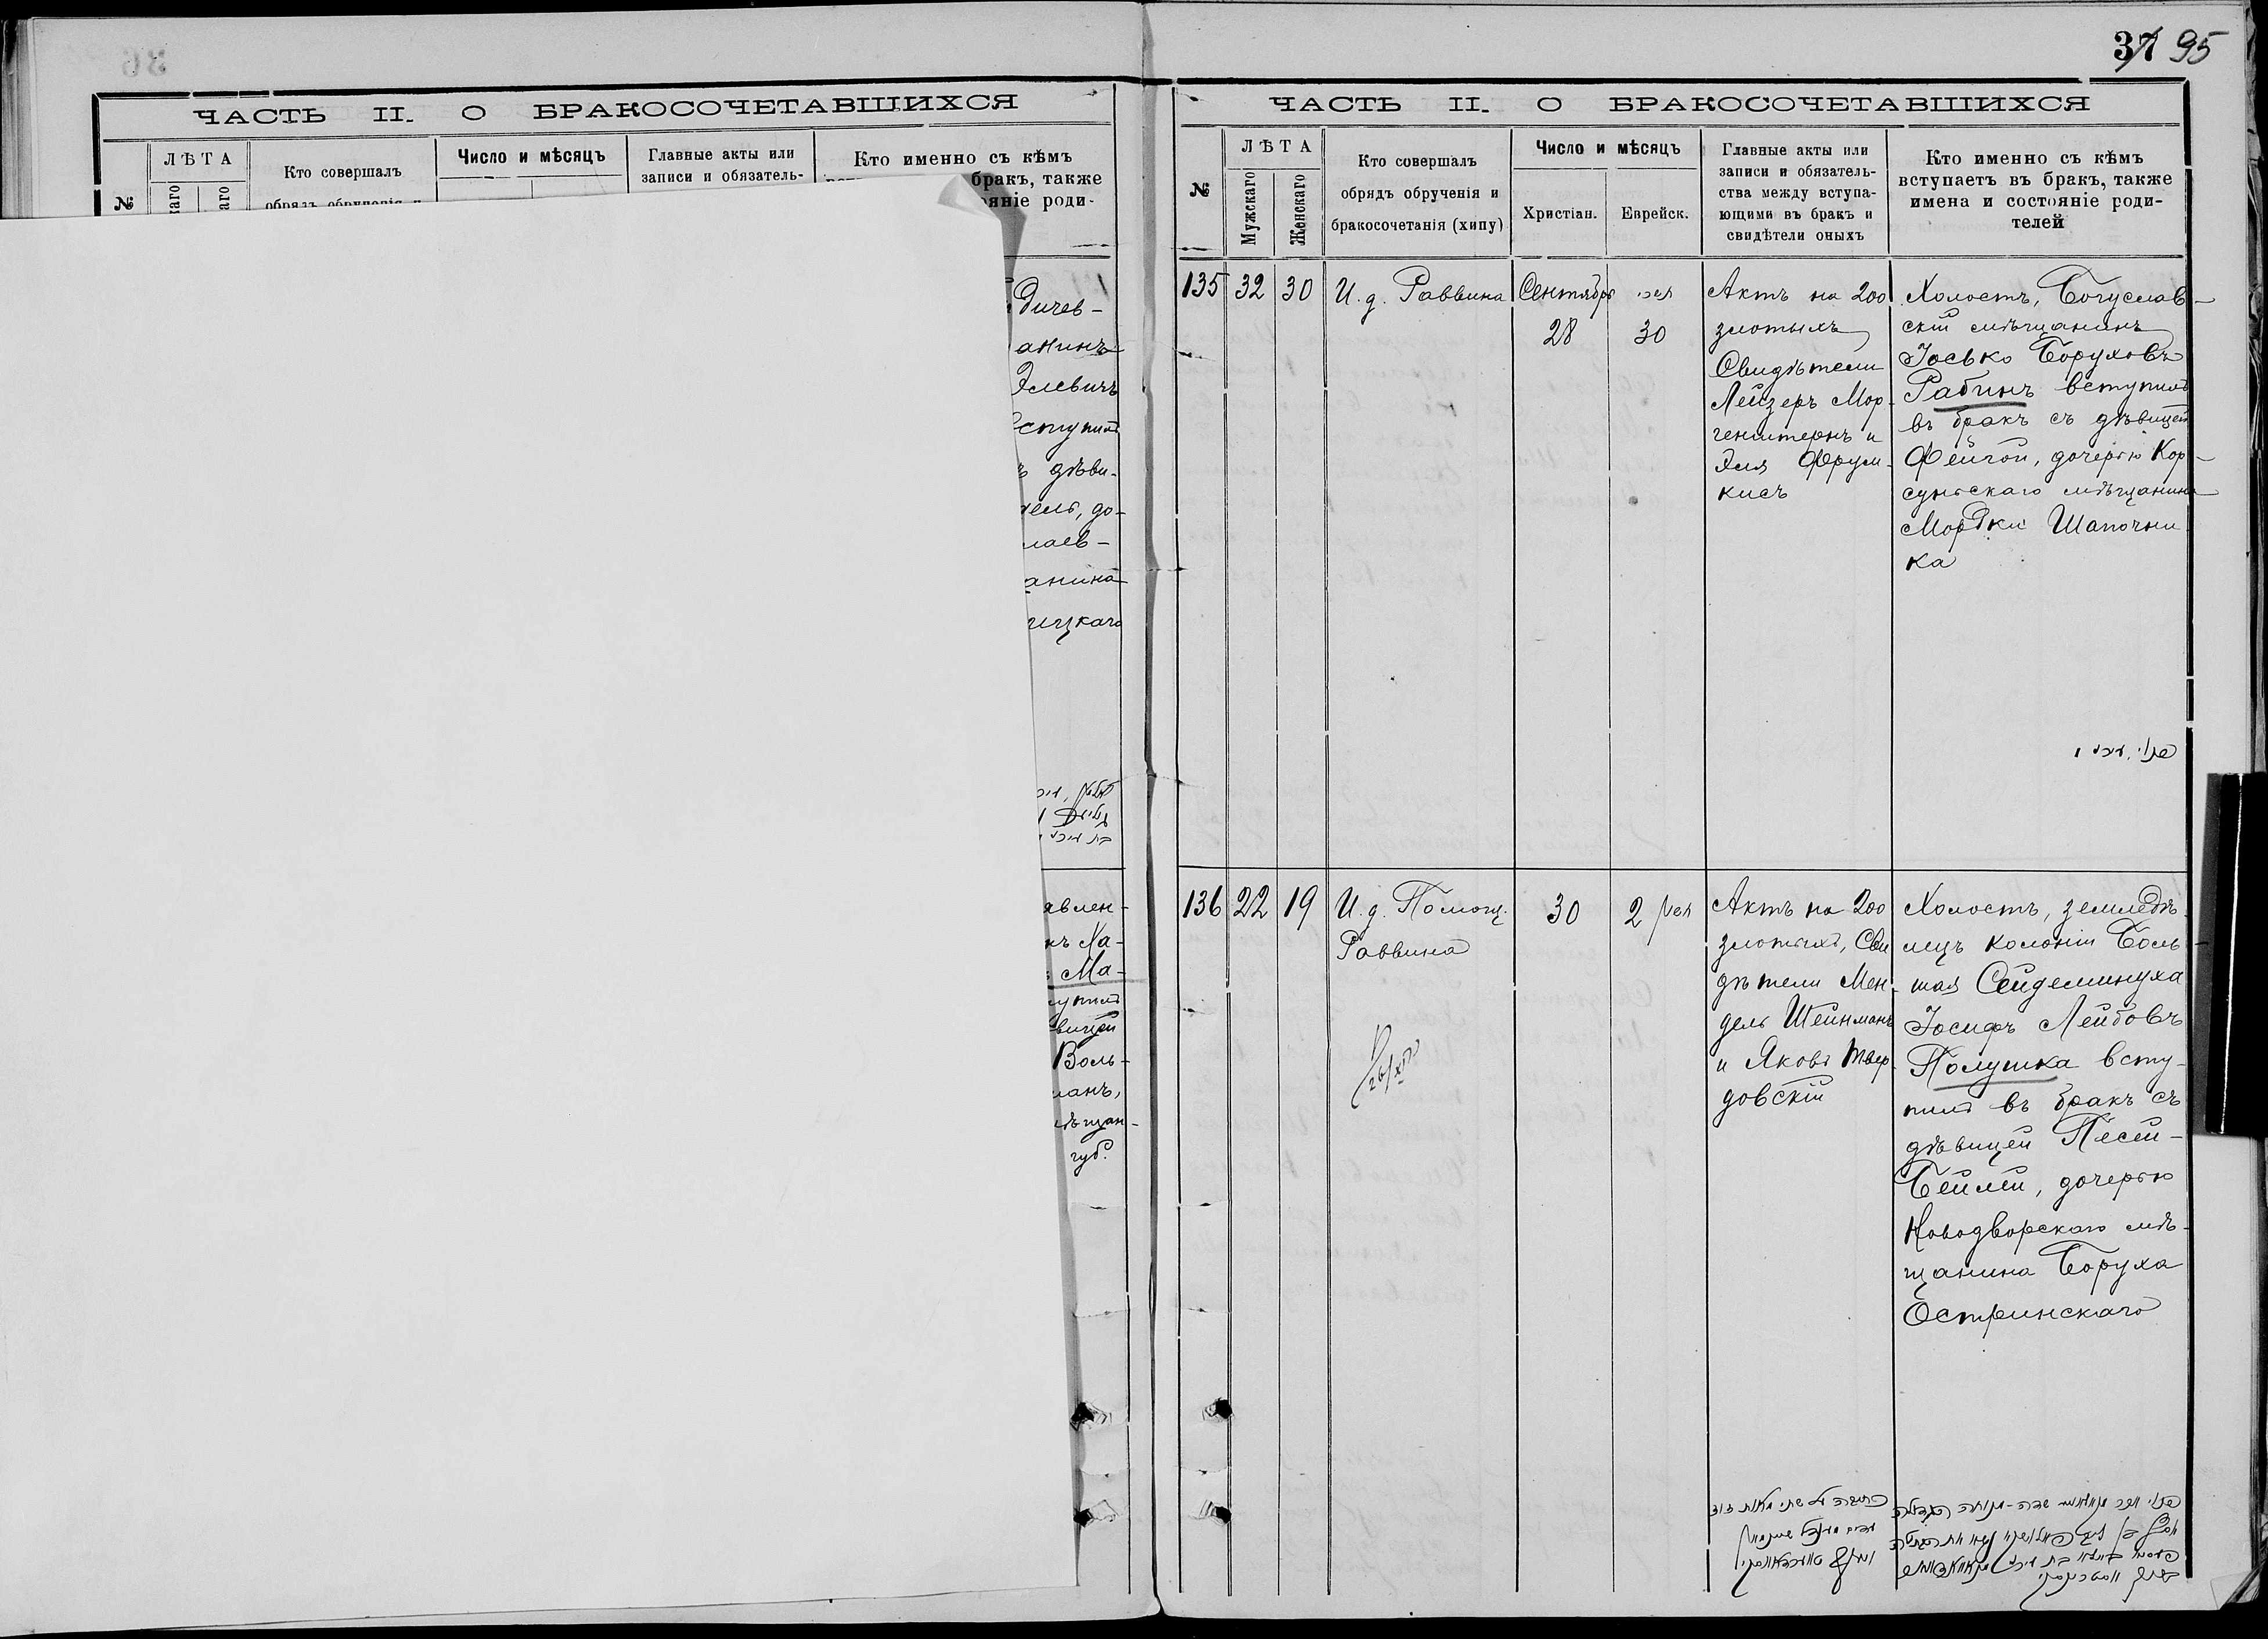 ЧАСТЬ II. О БРАКОСОЧЕТАВШИХСЯ
№
ЛѢТА
Кто совершалъ
Число и мѣсяцъ
Главные акты или
записи и обязатель-
Кто именно съ кѣмъ
бракъ, также
роди-
дичев-
анинъ
Элевичъ
вступилъ
дѣви-
до-
лаев-
анина
ицкаго
явлен-
Ха-
Ма-
вицей
Воль-
манъ,
ѣщан-
губ.
37 95
ЧАСТЬ II. О БРАКОСОЧЕТАВШИХСЯ
№
ЛѢТА
Мужскаго
Женскаго
Кто совершалъ
обрядъ обрученія и
бракосочетанія (хипу)
Число и мѣсяцъ
Христіан.
Еврейск.
Главные акты или
записи и обязатель-
ства между вступа-
ющими въ бракъ и
свидѣтели оныхъ
Кто именно съ кѣмъ
вступаетъ въ бракъ, также
имена и состояніе роди-
телей
135 32 30
И. д. Раввина
Сентября
28
30
Актъ на 200
злотыхъ
Свидѣтели
Лейзеръ Мор-
генштернъ и
Эля Фрум-
кисъ
Холостъ, Богуслав-
скій мѣщанинъ
Іосько Боруховъ
Рабинъ вступилъ
въ бракъ съ дѣвицей
Фейгой, дочерью Кор-
сунскаго мѣщанина
Мордки Шапочни
ка
136 22 19
И. д. Помощ.
Раввина
30
2
Актъ на 200
злотыхъ, Сви
дѣтели Мен-
дель Шейнманъ
и Яковъ Твер-
довскій
Холостъ, земледѣ-
лецъ колоніи Боль-
шая Сейдеминуха
Іосифъ Лейбовъ
Полушка всту-
пилъ въ бракъ съ
дѣвицей Песей-
Бейлей, дочерью
Новодворскаго мѣ-
щанина Боруха
Остринскаго